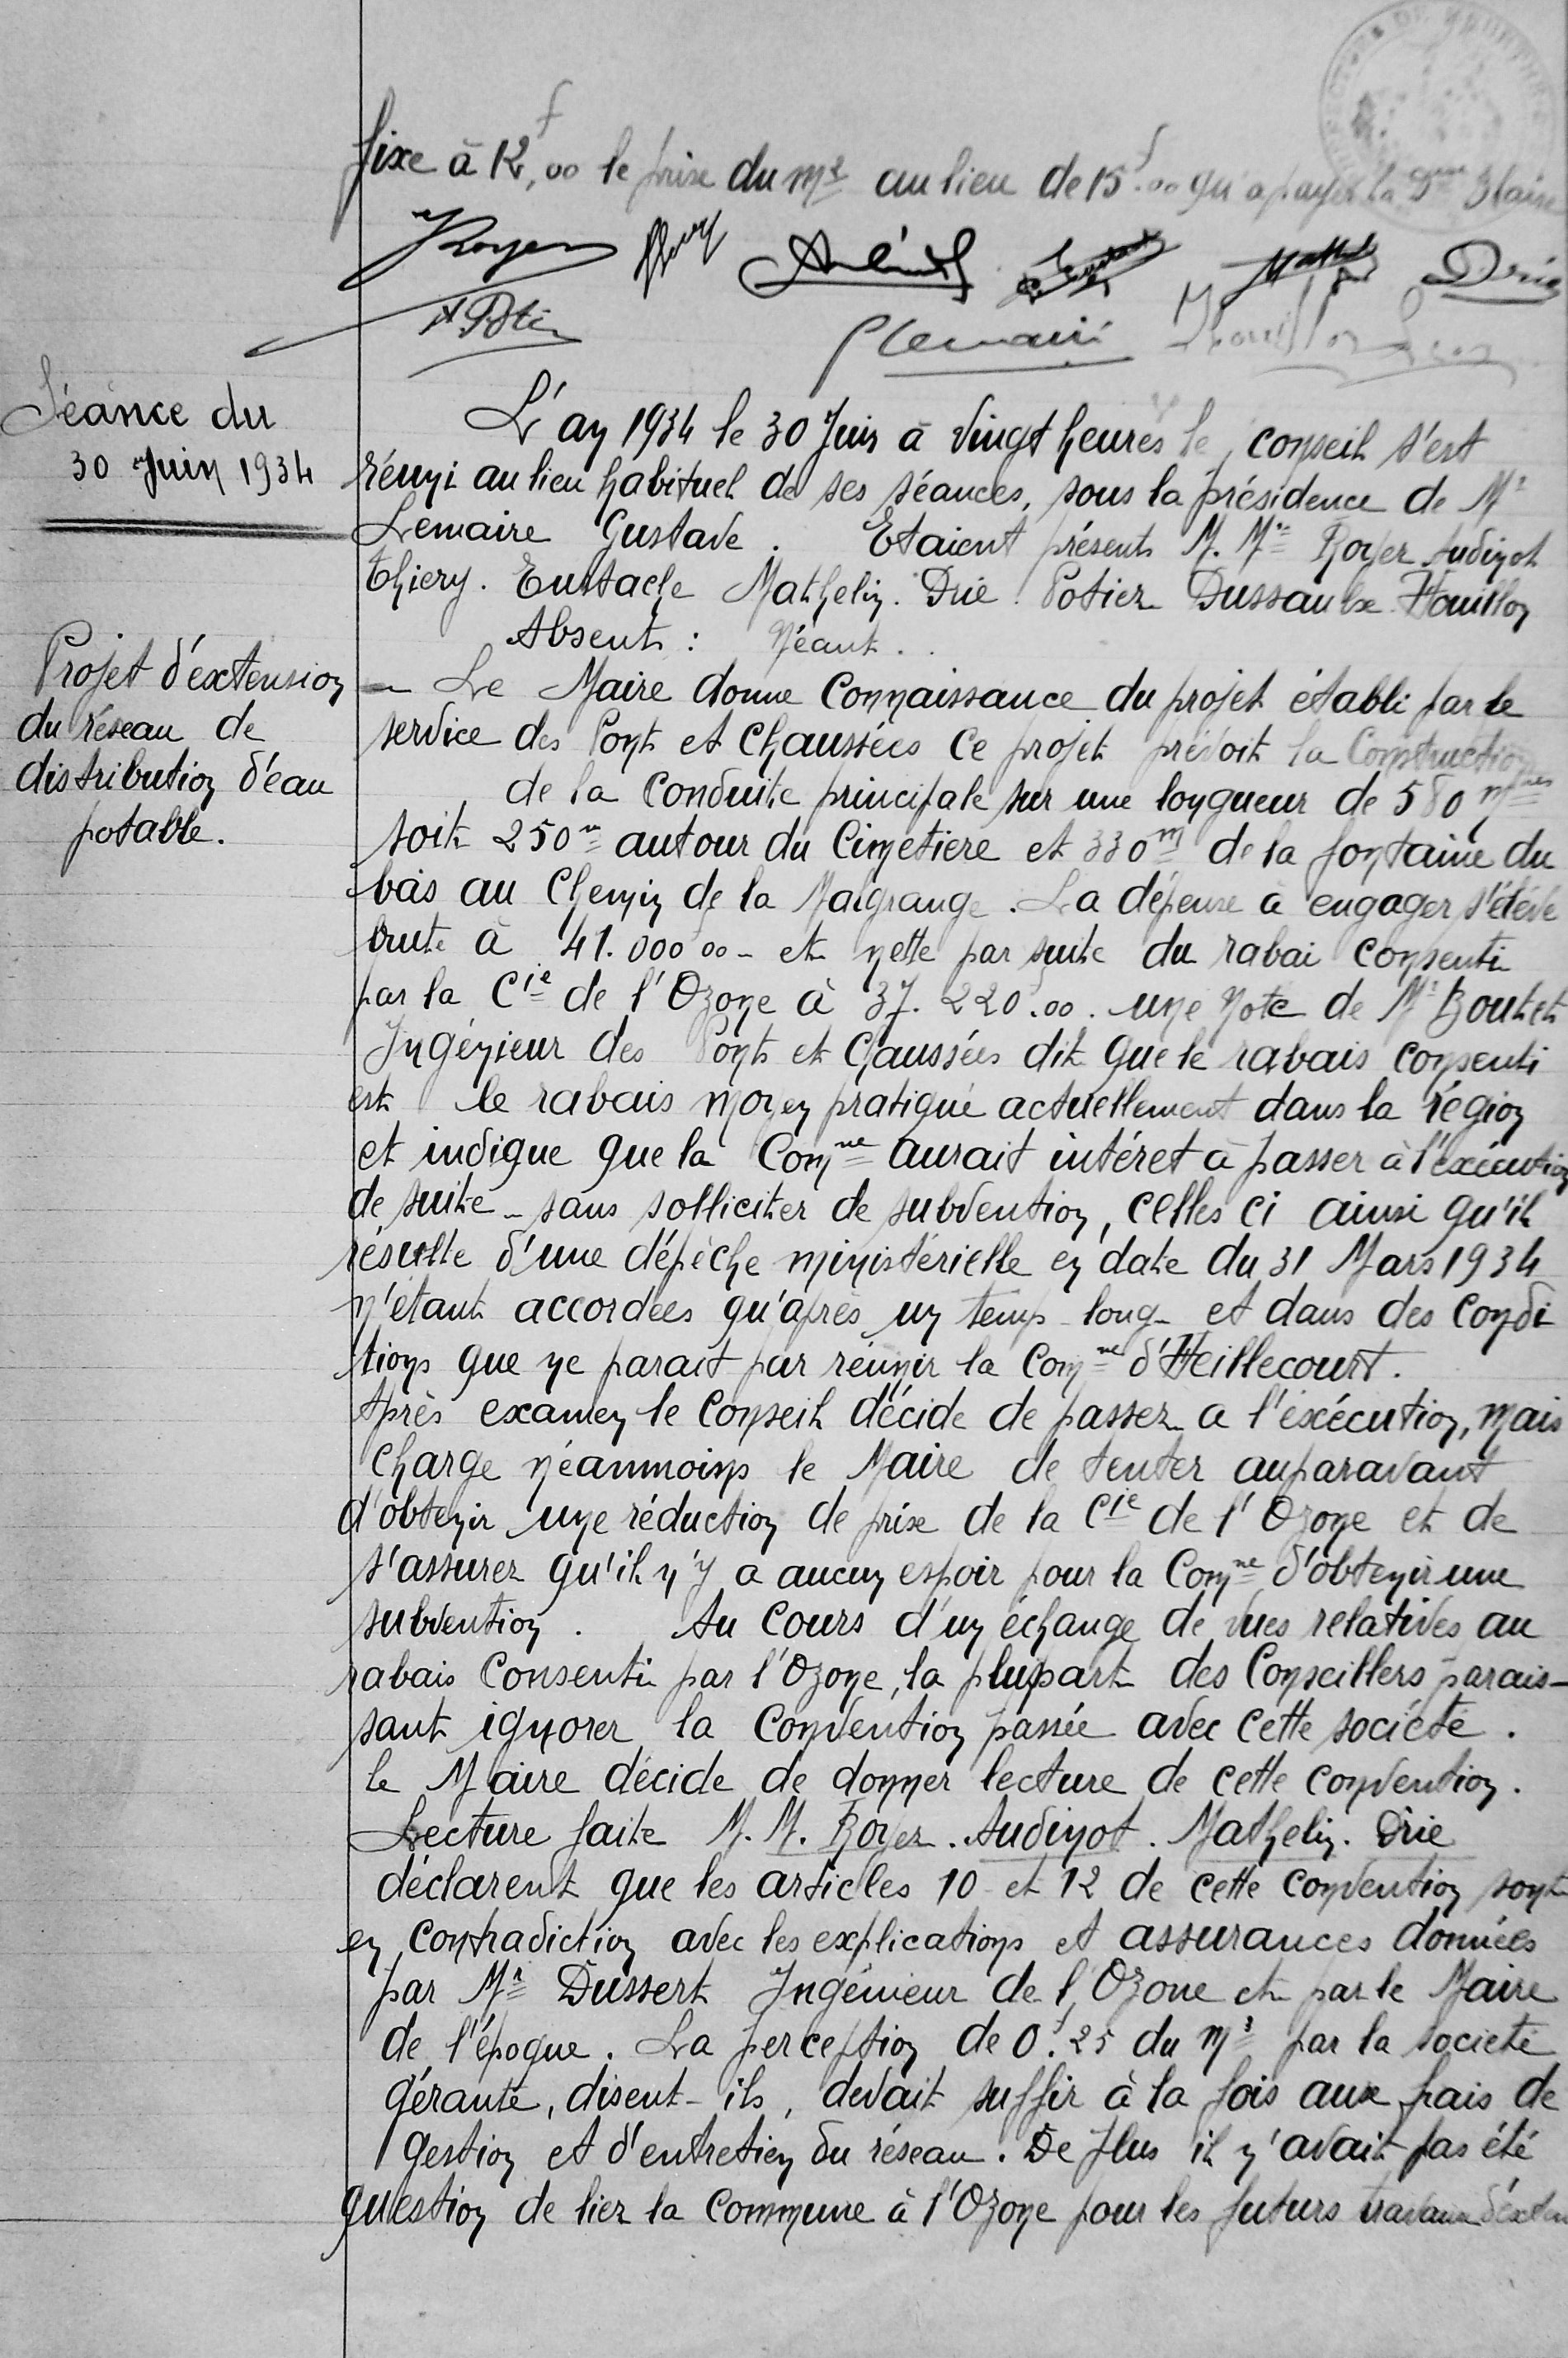 fixe à 12f,00 le prix du m2 au lieu de 15f.00 qu'a payé la Dme Blaise
Royer
A Potier
G Lemaire
Séance du
30 Juin 1934
L'an 1934 le 30 Juin à Vingt heures le conseil s'est
réuni au lieu habituel de ses séances, sous la présidence de Mr
Lemaire Gustave. Etaient présents M. Mrs Royer Audinot
thiery. Eustache Mathelin. Drie. Potier Dussaulx Houillon
Absent : Néant.
Projet d'éxtension
du réseau de
distribution d'eau
potable.
— Le Maire donne Connaissance du projet établi par le
service des Ponts et Chaussées Ce projet prévoit la Construction
de la Conduite principale sur une longueur de 580 mtres
soit 250m autour du Cimetiere et 330m de la fontaine du
bas au Chemin de la Malgrange. La dépense à engager s'élève
brute à 41.000f00 - et nette par suite du rabai consenti
par la Cie de l'Ozone à 37.220f.00. une Note de Mr Boutet
Ingénieur des Ponts et Chaussées dit que le rabais consenti
est le rabais moyen pratiqué actuellement dans la région
et indique que la Comne aurait intéret à passer à l'exécution
de suite - sans solliciter de subvention, celles ci ainsi qu'il
résulte d'une dépêche ministérielle en date du 31 Mars 1934
n'étant accordées qu'après un temps long - et dans des Condi
tions que ne parait pas réunir la Comne d'Heillecourt.
Après examen le Conseil décide de passer a l'éxécution, mais
charge néanmoins le Maire de tenter auparavant
d'obtenir une réduction de prix de la Cie de l'Ozone et de
s'assurer qu'il n'y a aucun espoir pour la Comne d'obtenir une
subvention. Au Cours d'un échange de vues relatives au
rabais Consenti par l'Ozone, la plupart des Conseillers parais-
sant ignorer la Convention passée avec cette société.
le Maire décide de donner lecture de cette convention.
Lecture faite M. M. Royer. Audinot. Mathelin. Drie
déclarent que les articles 10 et 12 de cette convention sont
en contradiction avec les explications et assurances données
par Mr Dussert Ingénieur de l'Ozone et par le Maire
de l'époque. La perception de 0f.25 du m3 par la societé
gérante, disent-ils, devait suffir à la fois aux frais de
gestion et d'entretien du réseau. De plus il n'avait pas été
question de lier la Commune à l'Ozone pour les futurs travaux